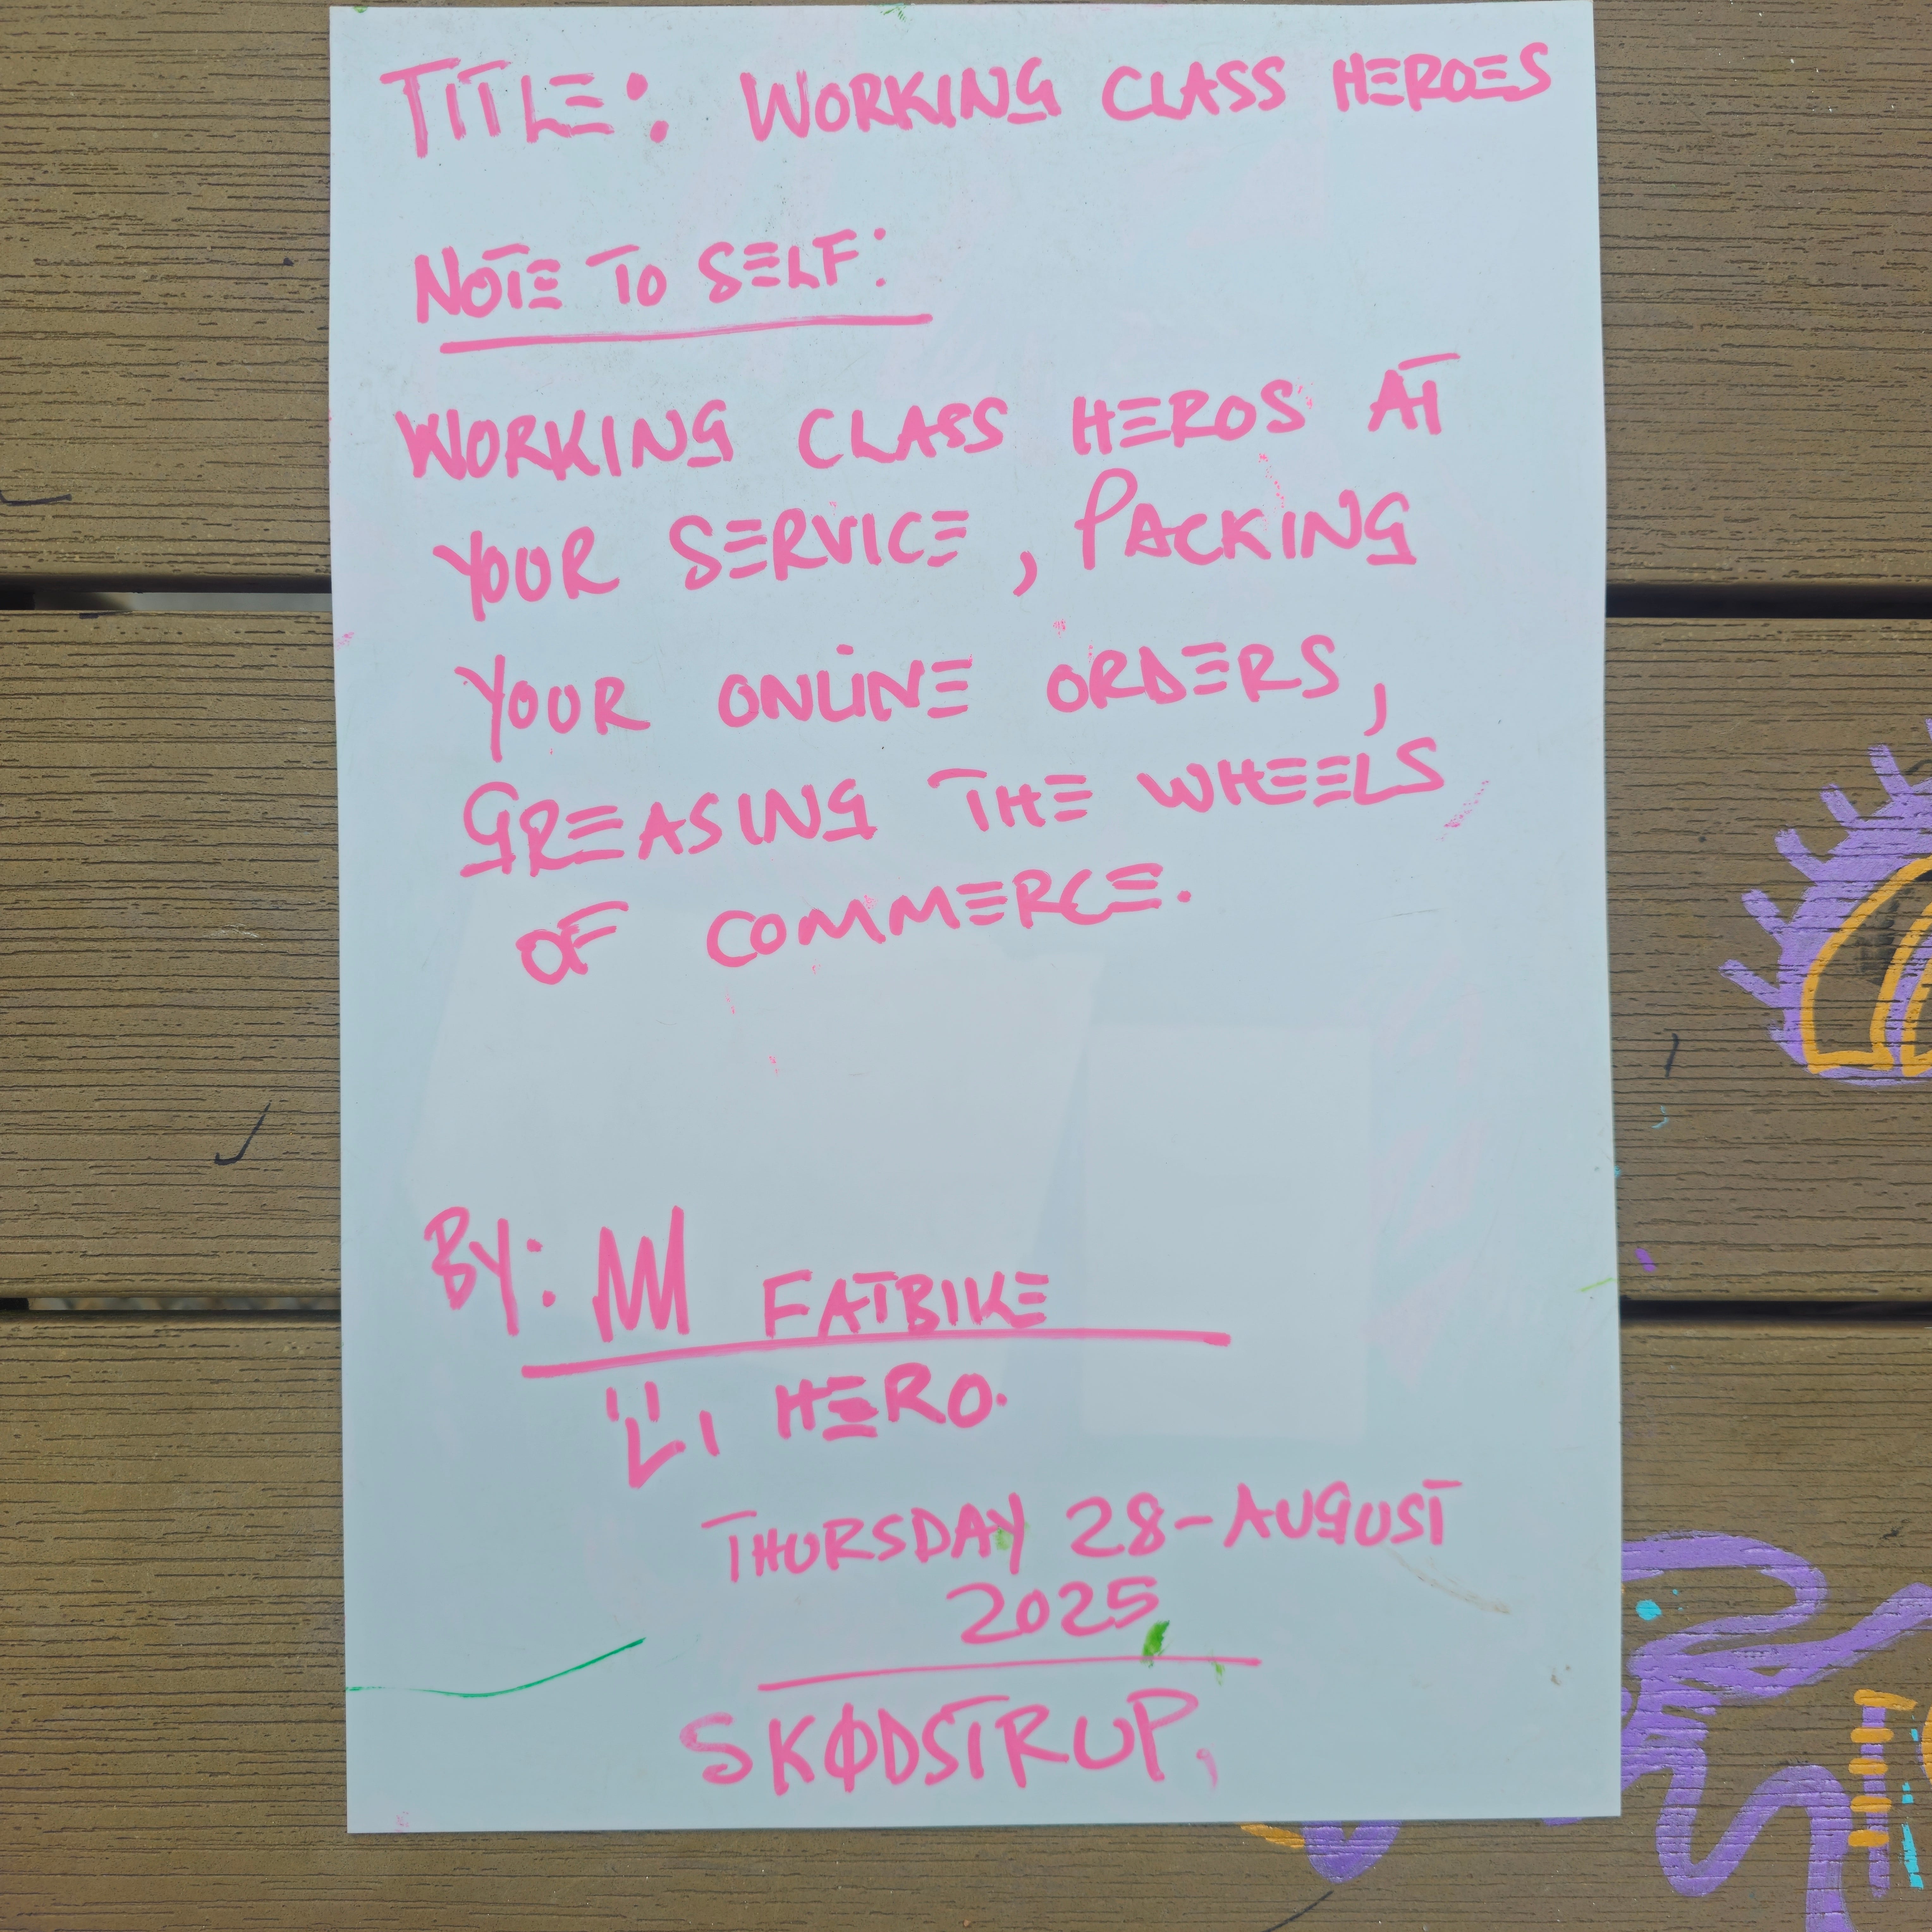 TITLE: WORKING CLASS HEROES
NOTE TO SELF:
WORKING CLASS HEROS AT
YOUR SERVICE, PACKING
YOUR ONLINE ORDERS,
GREASING THE WHEELS
OF COMMERCE.
BY: FATBIKE
HERO.
THURSDAY 28-AUGUST
2025
SKØDSTRUP,